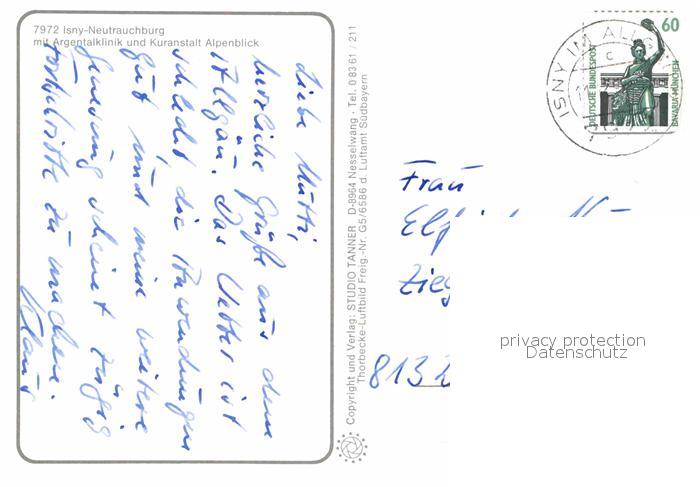 7972 Isny-Neutrauchburg
mit Argentalklinik und Kuranstalt Alpenblick
Liebe Mutti,
herzliche Grüße aus dem
Allgäu. Das Wetter ist
schlecht, die Anwendungen
gut, und meine weitere
Genesung scheint zügig
Fortschritte zu machen.
Klaus
Copyright und Verlag: STUDIO TANNER D-8964 Nesselwang · Tel. 0 83 61 / 211
Thorbecke-Luftbild Freig.-Nr. G5/6586 d. Luftamt Südbayern
60
DEUTSCHE BUNDESPOST
BAVARIA MÜNCHEN
ISNY IM ALLG
c
Frau
Zieg
8132
privacy protection
Datenschutz